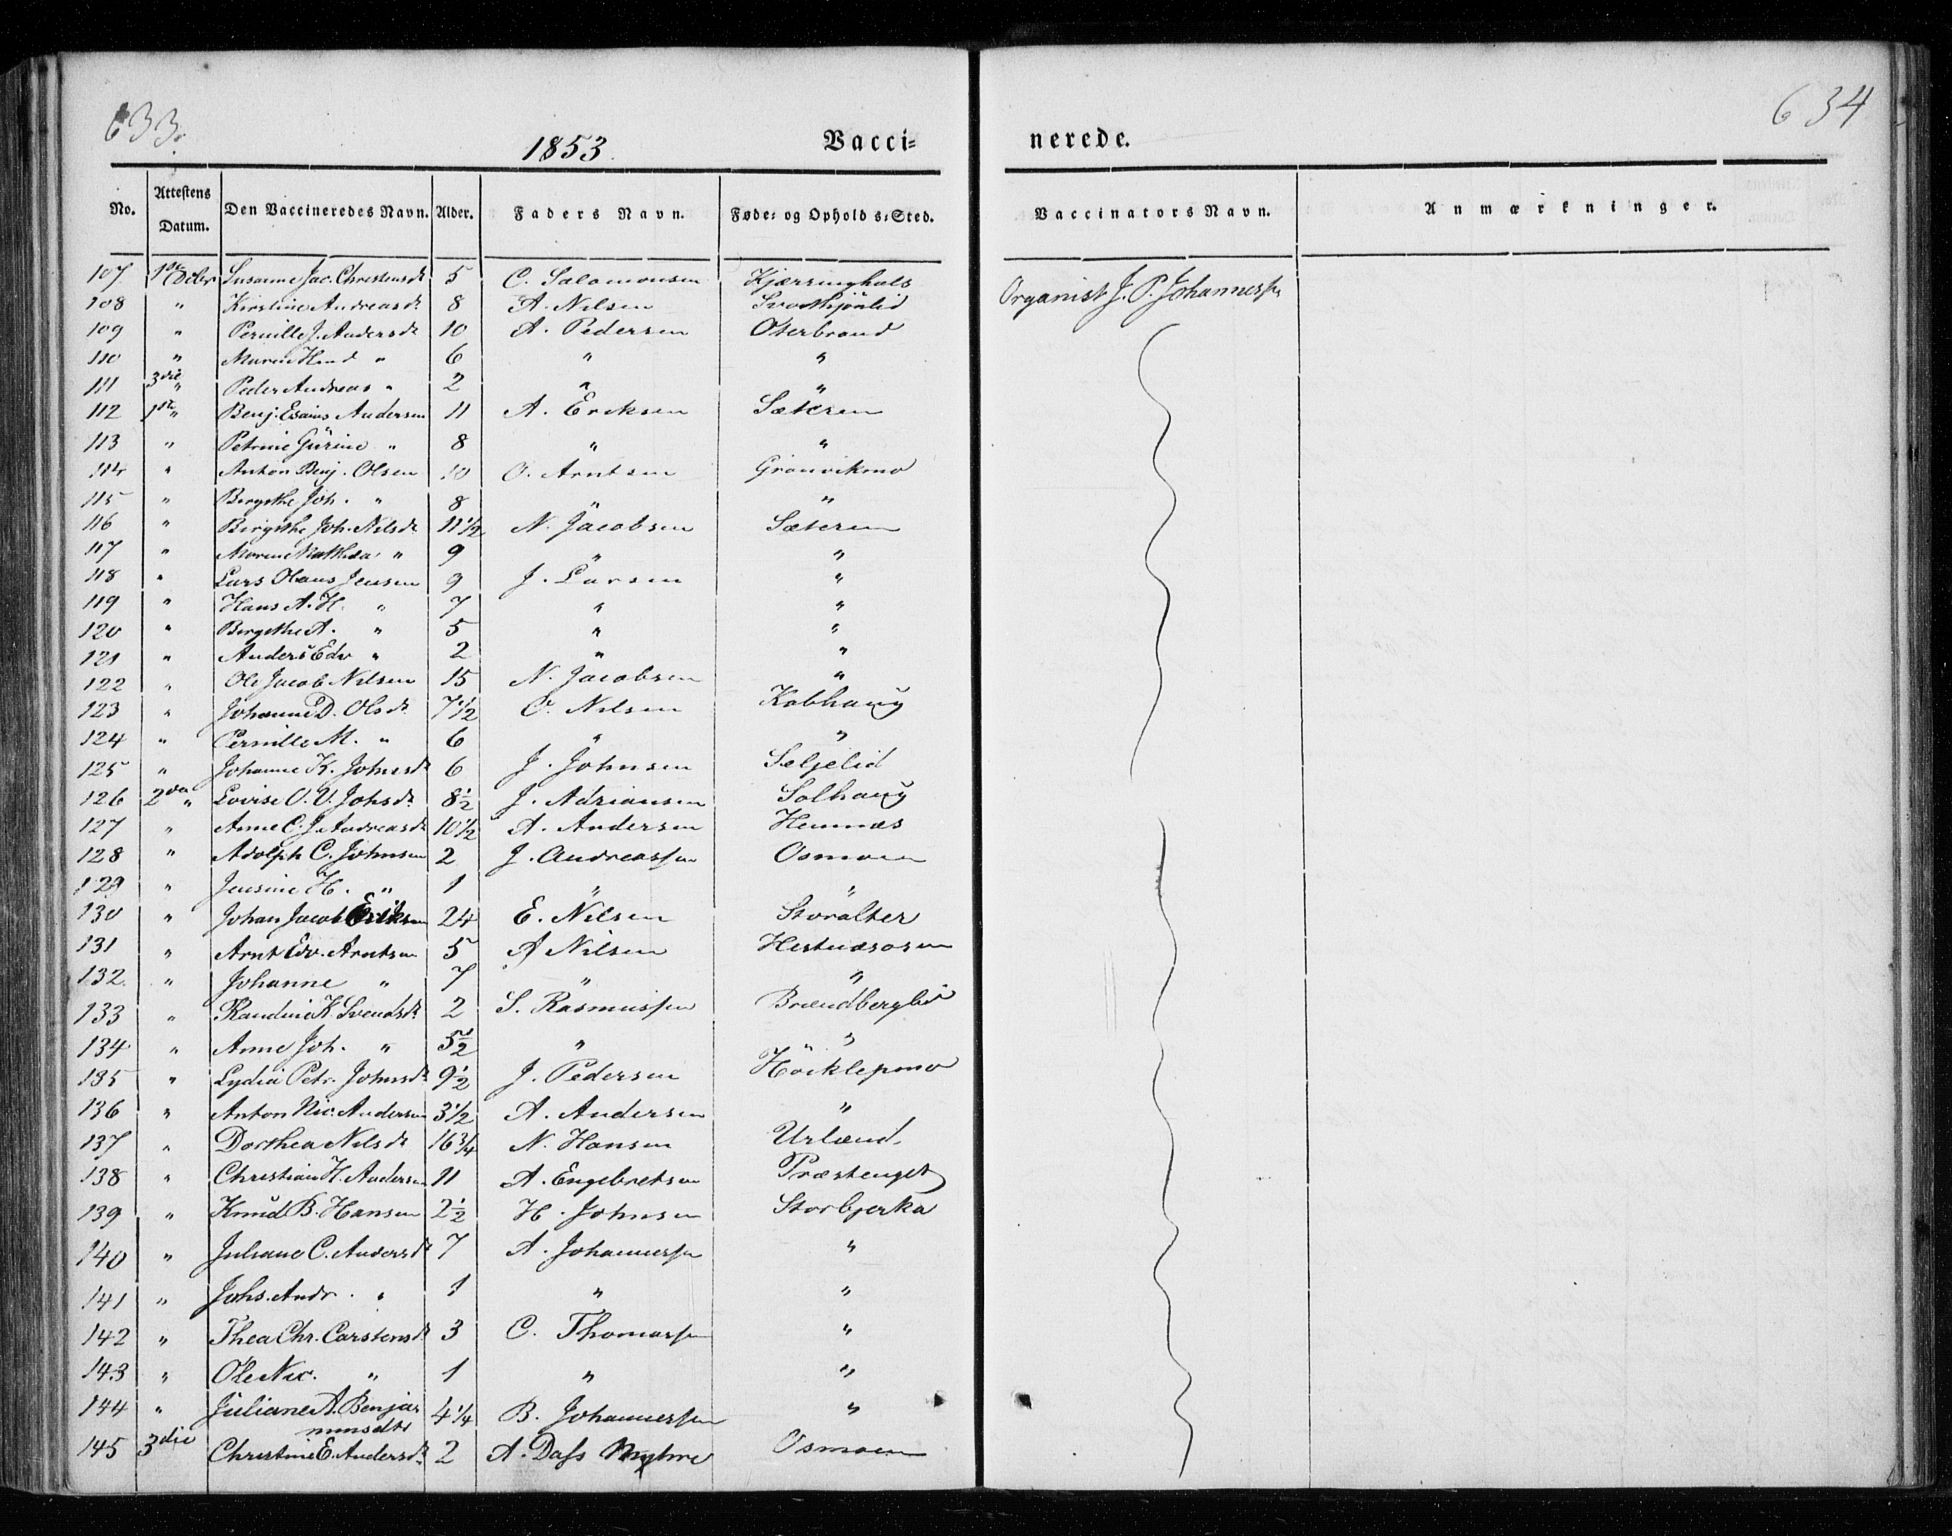 633.
634
1853.
Vacci=
nerede.
No.
Attestens Datum.
Den Vaccineredes Navn.
Alder.
Faders Navn.
Føde= og Opholds=Sted.
Vaccinators Navn.
Anmærkninger.
107 1ste Octbr Susanne Jac. Christensdr 5 C. Salomonsen Kjærringhals Organist J. P. Johannessen
108 " Kirstine Andreasdr 8 A. Nilsen
109 " Pernille J. Andersdr 10 A. Pedersen Oterbrand
110 " Maren Hend " 6 " "
111 3die " Peder Andreas " 2 " "
112 1ste " Benj. Esaias Andersen 11 A. Eriksen Sæteren
113 " Petrine Gurine " 8 " "
114 " Anton Benj. Olsen 10 O. Arntsen Grönvikmo
115 " Bergithe Joh. " 8 " "
116 " Birgithe Joh. Nilsdr 11 1/2 N. Jacobsen Sæteren
117 " Maren Mathea " 9 " "
118 " Lars Olaus Jensen 9 J. Larsen "
119 " Hans A. H. " 7 " "
120 " Bergithe A. " 5 " "
121 " Anders Edv " 2 " "
122 " Ole Jacob Nilsen 15 N. Jacobsen "
123 " Johanne D. Olsdr 7 1/2 O. Nilsen Kobhaug
124 " Pernille M. " 6 " "
125 " Johanne K. Johnsdr 6 J. Johnsen Seljelid
126 2den " Lovise O. V. Johsdr 8 1/2 J. Adriansen Solhaug
127 " Anne C. J. Andreasdr 10 1/2 A. Andersen Hemnæs
128 " Adolph C. Johnsen 2 J. Andreassen Osmoen
129 " Jensine H. " 1 " "
130 " Johan Jacob Eriksen 24 E. Nilsen Storalter
131 " Arnt Edv. Arntsen 5 A Nilsen Hestnæsosen
132. " Johanne " 7 " "
133 " Randine K. Svendsdr 2 S. Rasmussen Brændberglid
134 " Anne Joh. " 5 1/2 " "
135 " Lydia Petr. Johnsdr 9 1/2 J. Pedersen
136 " Anton Nic. Andersen 3 1/2 A. Andersen "
137 " Dorthea Nilsdr 16 3/4 N. Hansen Urland.
138 " Christian H. Andersen 11 A. Engebretsen Præstenget
139 " Knud B. Hansen 2 1/2 H. Johnsen Storbjerka
140 " Juliane C. Andersdr 7 A. Johannessen "
141 " Johs. Andr. " 1 " "
142 " Thea Chr. Carstensdr 3 C. Thomassen "
143 " Ole Nic. " 1 " "
144 " Juliane A. Benjaminsdtr 4 1/4 B. Johannessen "
145 3die Christine E. Andersdr 2 A. Dass Myhre Osmoen